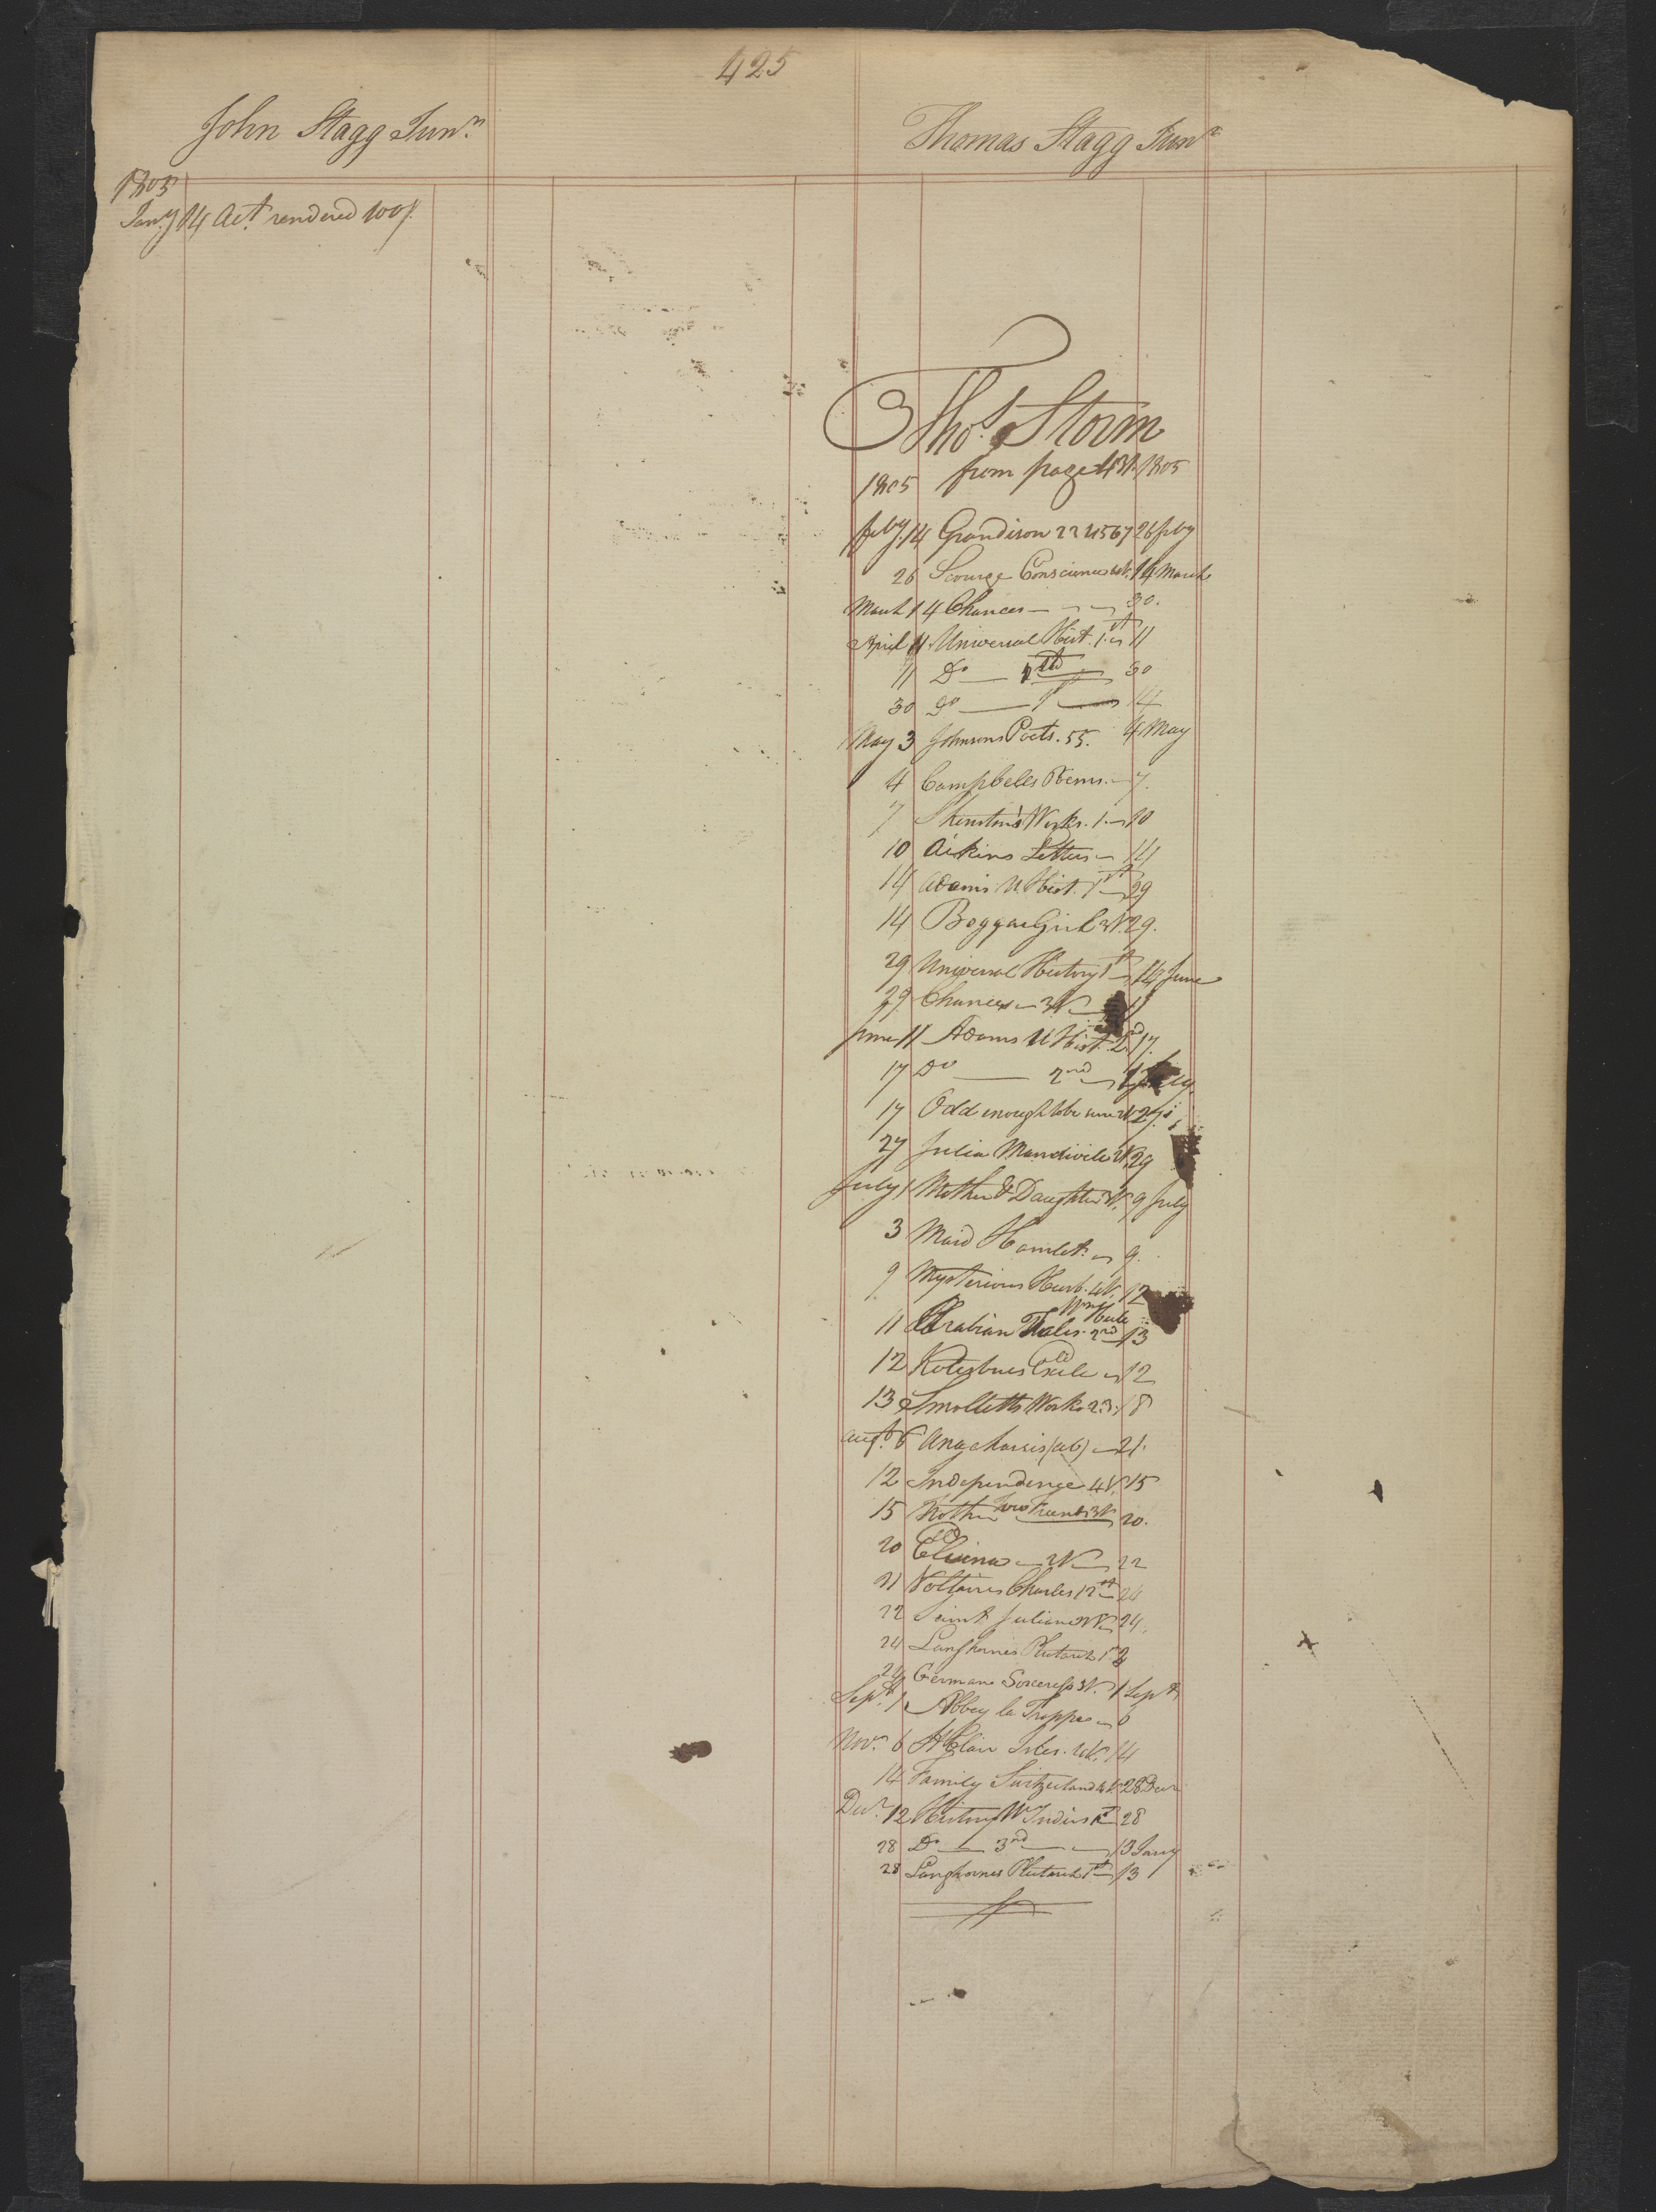 425
John Stagg Junr.
Thomas Stagg Junr
1805
Jany 14 Act. rendered 100/.
Thos. Storm
1805 from page 431. 1805
feby. 14 Grandison 2 2 4 5 6 7 26 feby
26 Scourge Conscience 4V. 14 March
March 14 Chances — 30.
April 11 Universal Hist. 1st 11
11 Do — 2nd — 30
30 Do — 1st — 14
May 3 Johnsons Poets. 55. 4 May
4 Campbells Poems. — 7.
7 Shenstons Works. 1. — 10
10 Aikins Letters — 14
14 Adams U. Hist. 1st — 29
14 Beggar Girl 3V. 29.
29 Universal History 1st — 14 June
29 Chances — 3V — 11
June 11 Adams U Hist. 2d 17.
17 Do — 2nd — July.
17 Odd enough to be sure 2V 27.
27 Julia Mandivile 2V. 29
July 1 Mother & Daughter 3V. 9 July
3 Maid Hamlet. — 9.
9 Mysterious Husb. 4V. 12
11 Arabian Tales. 2nd 13
12 Kotzebues Exile — 12
13 Smolletts Works 2.3. 18
Augt. 6 Anacharsis (ab) — 21.
12 Independence 4V. 15
15 Ruthin 3V 20.
20 Elvina — 2V — 22
21 Voltaires Charles 12th 24
22 Saint Julian 2V — 24.
24 Langhornes Plutarch 1st
24 German Sorceress 3V. 1 Sept
Sept. 1 Abbey la Trappe — 6
Novr. 6 St Clair Isles. 4V. 14
14 Family Switzerland 4V. 28 Decr
Decr. 12 History W Indies 28
28 Do — 3rd — 13 Jany
28 Langhornes Plutarch 1st — 13